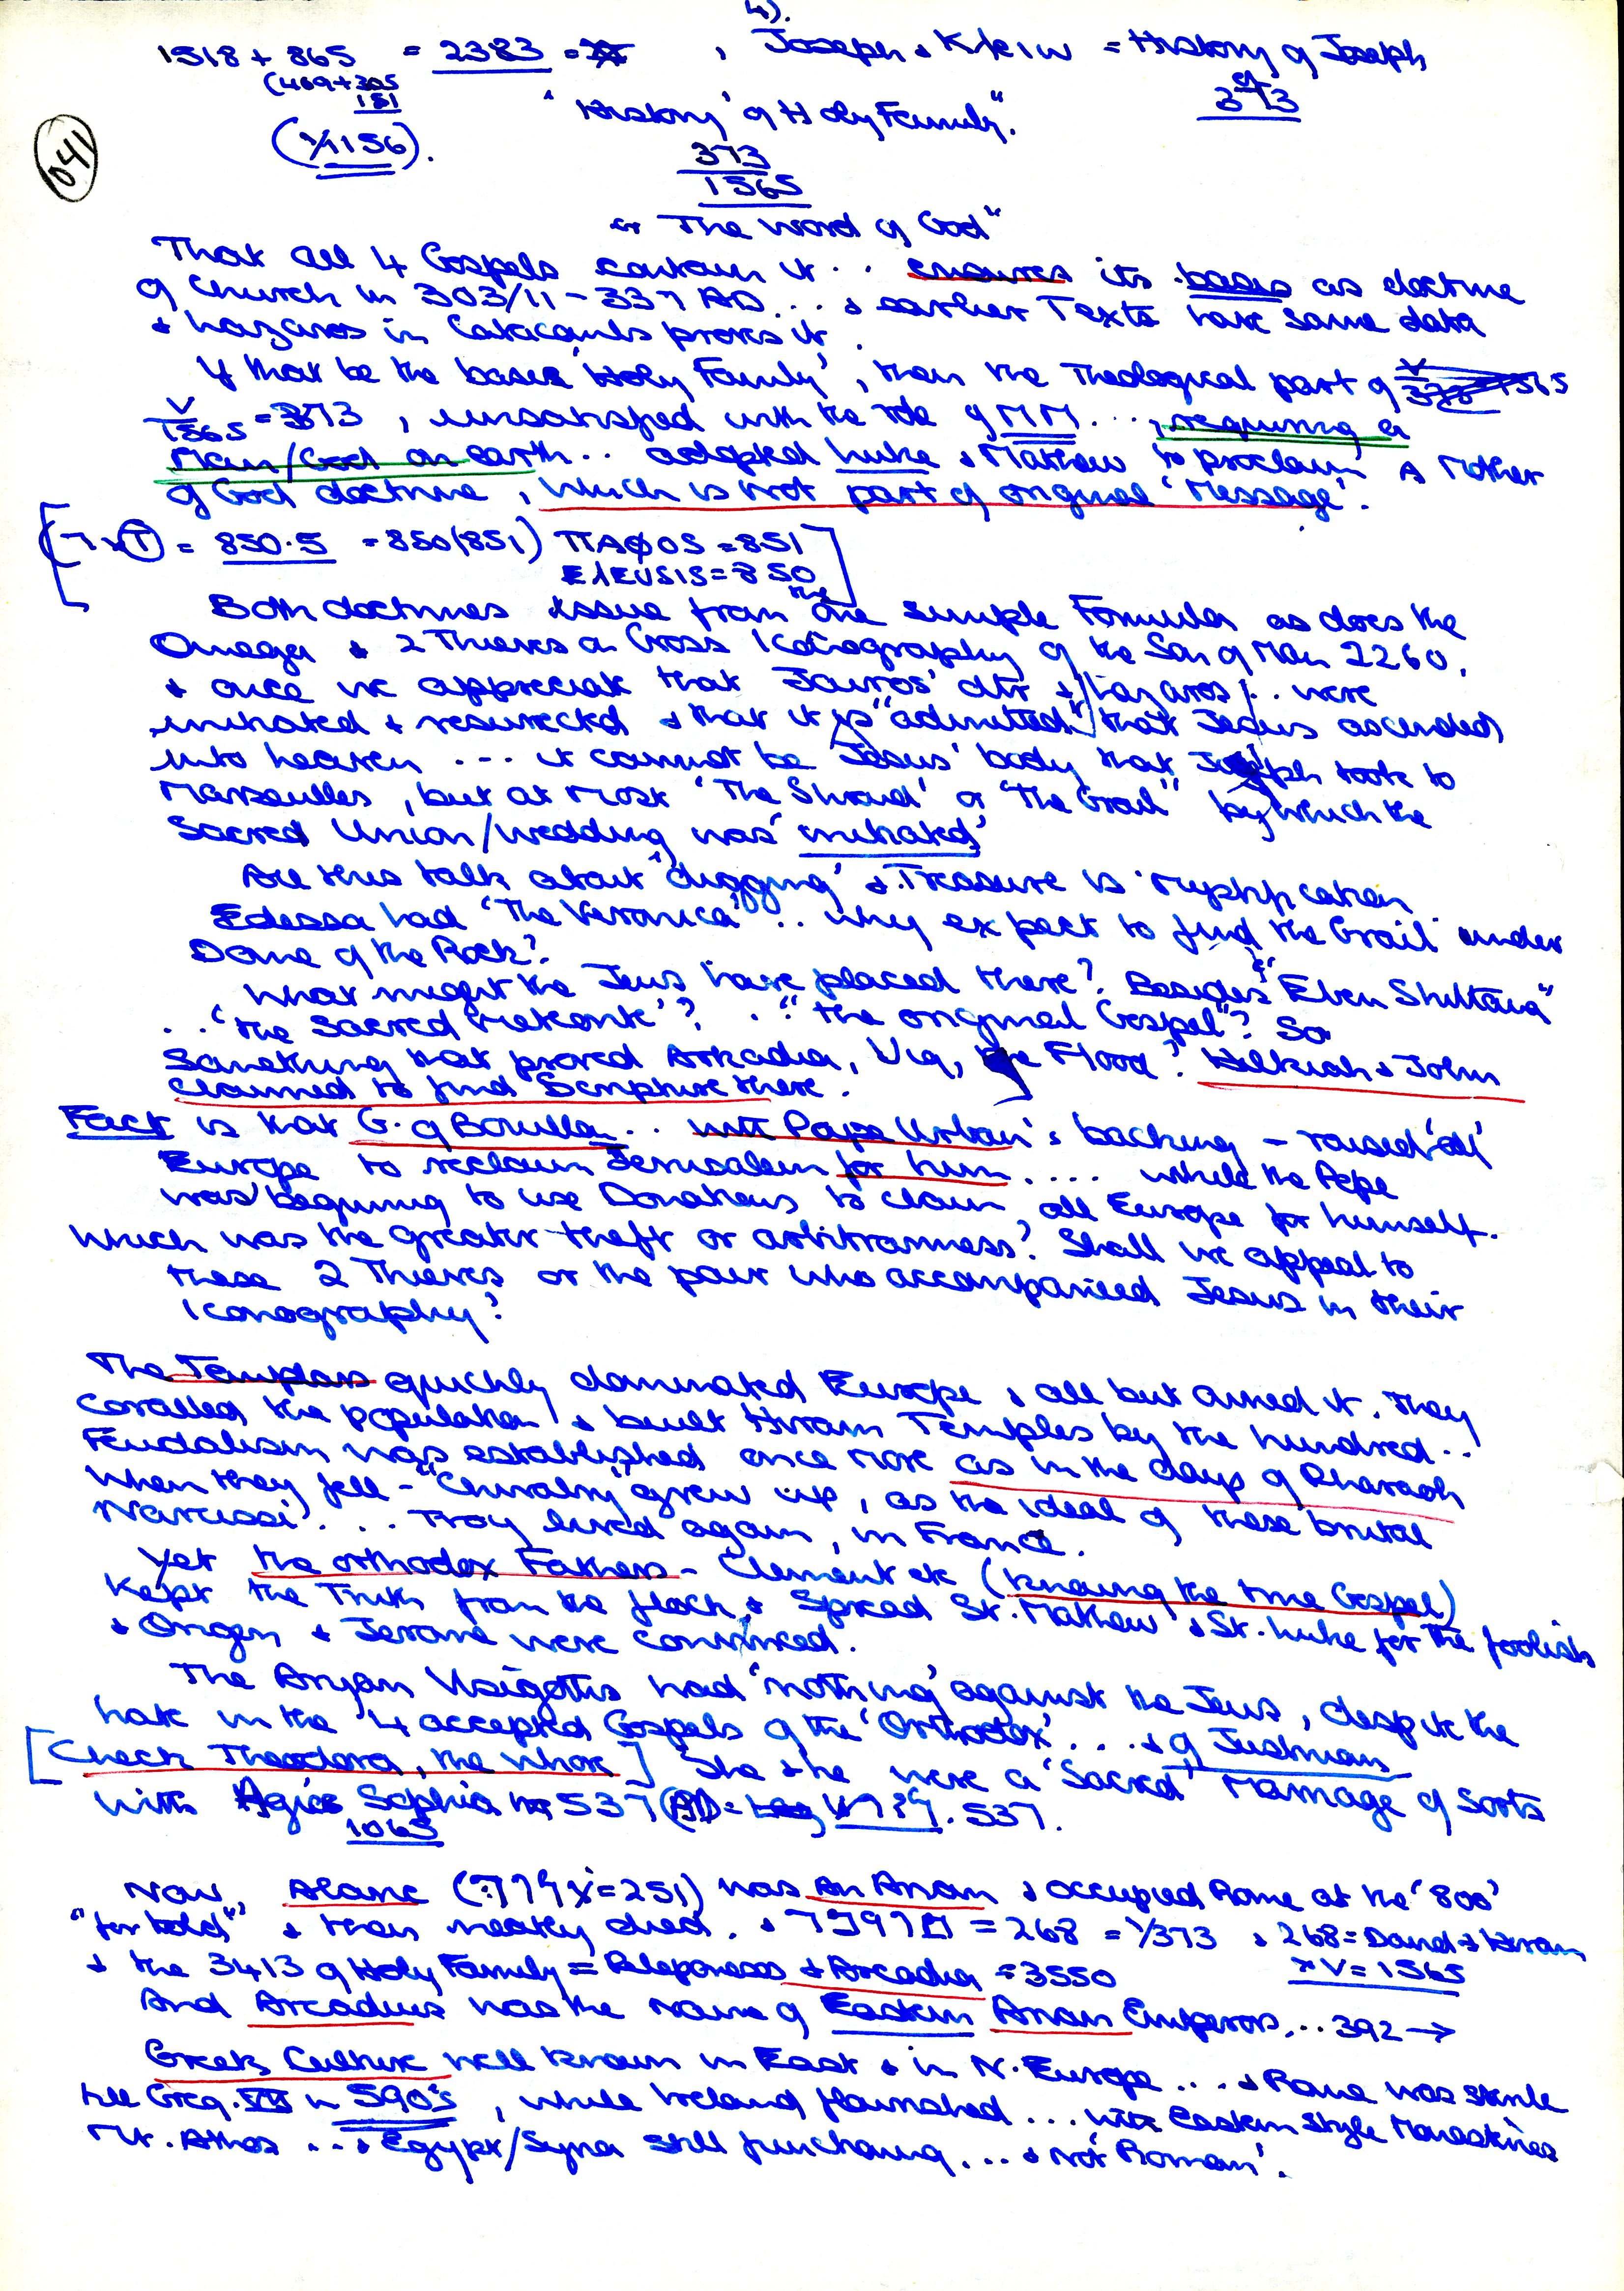 4).
1518 + 865 = 2383 = , Joseph + K/eiw = History of Joseph
(469+305
181
of
373
(√1156).
'History' of Holy Family."
041
373
1565
or "The Word of God"
That all 4 Gospels contain it .. ensures its bases as doctrine
of Church in 303/11 - 337 AD ... & earlier Texts have same data
& Lazaros in Catacombs proves it.
If that be the bases 'Holy Family', then the Theological part of √1565
√1565 = 373, unsatisfied with the role of MM ... , requiring a
Man/God on earth .. adopted Luke & Mathew to proclaim A Mother
of God doctrine, which is not part of original 'Message'.
[ = 850.5 = 850(851) ΠΑΦΟΣ = 851
ELEUSIS = 850 ]
Both doctrines issue from the one simple Formula as does the
Omega & 2 Thieves on Cross Iconography of the Son of Man 2260.
& once we appreciate that Jairos' dtr & Lazaros .. were
initiated & resurrected & that it is "admitted" that Jesus ascended
into heaven ... it cannot be Jesus' body that Joseph took to
Marseilles, but at most 'The Shroud' or 'the Grail' by which the
Sacred Union/wedding was 'initiated'
All this talk about 'digging' & Treasure is mystification
Edessa had 'The Veronica' .. why expect to find the Grail under
Dome of the Rock?
What might the Jews have placed there? Besides "Eben Shiltana"
.. 'the Sacred Meteorite'? .. "the original Gospel"? So
Something that proved Arkadia, the Flood? Hilkiah & John
claimed to find Scripture there.
Fact is that G. of Bouillon .. with Pope Urban's backing - roused 'all'
Europe to reclaim Jerusalem for him .... while the Pope
was beginning to use Donations to claim all Europe for himself.
Which was the greater theft or arbitrariness? Shall we appeal to
these 2 Thieves or the pair who accompanied Jesus in their
Iconography?
The Templars quickly dominated Europe & all but owned it. They
coralled the population & built Hiram Temples by the hundred ..
Feudalism was established once more as in the days of Pharaoh
When they fell - "Chivalry" grew up, as the ideal of these brutal
Narcissi' ... Troy lived again, in France.
Yet the orthodox Fathers - Clement etc (knowing the true Gospel)
kept the Truth from the flock & Spread St. Mathew & St. Luke for the foolish
& Origen & Jerome were convinced.
The Aryan Visigoths had 'nothing' against the Jews, despite the
hate in the 4 accepted Gospels of the 'Orthodox' ... & of Justinian
[Check Theodora, the Whore] She & he were a 'Sacred' Marriage of sorts
with Agios Sophia in 537 (AD = . 537.
1065
Now, Alaric ( = 251) was an Arian & occupied Rome at the '800'
"for told" & then neatly died. & = 268 = √373 & 268 = David + Hiram
x V = 1565
& the 3413 of Holy Family = Peloponess & Arcadia = 3550
And Arcadius was the name of Eastern Arian Emperors, .. 392 →
Greek Culture well known in East & in N. Europe ... & Rome was sterile
till Greg. VII in 590's, while Ireland flourished ... with Eastern style Monasteries
Mt. Athos ... & Egypt/Syria still functioning ... & not 'Roman'.